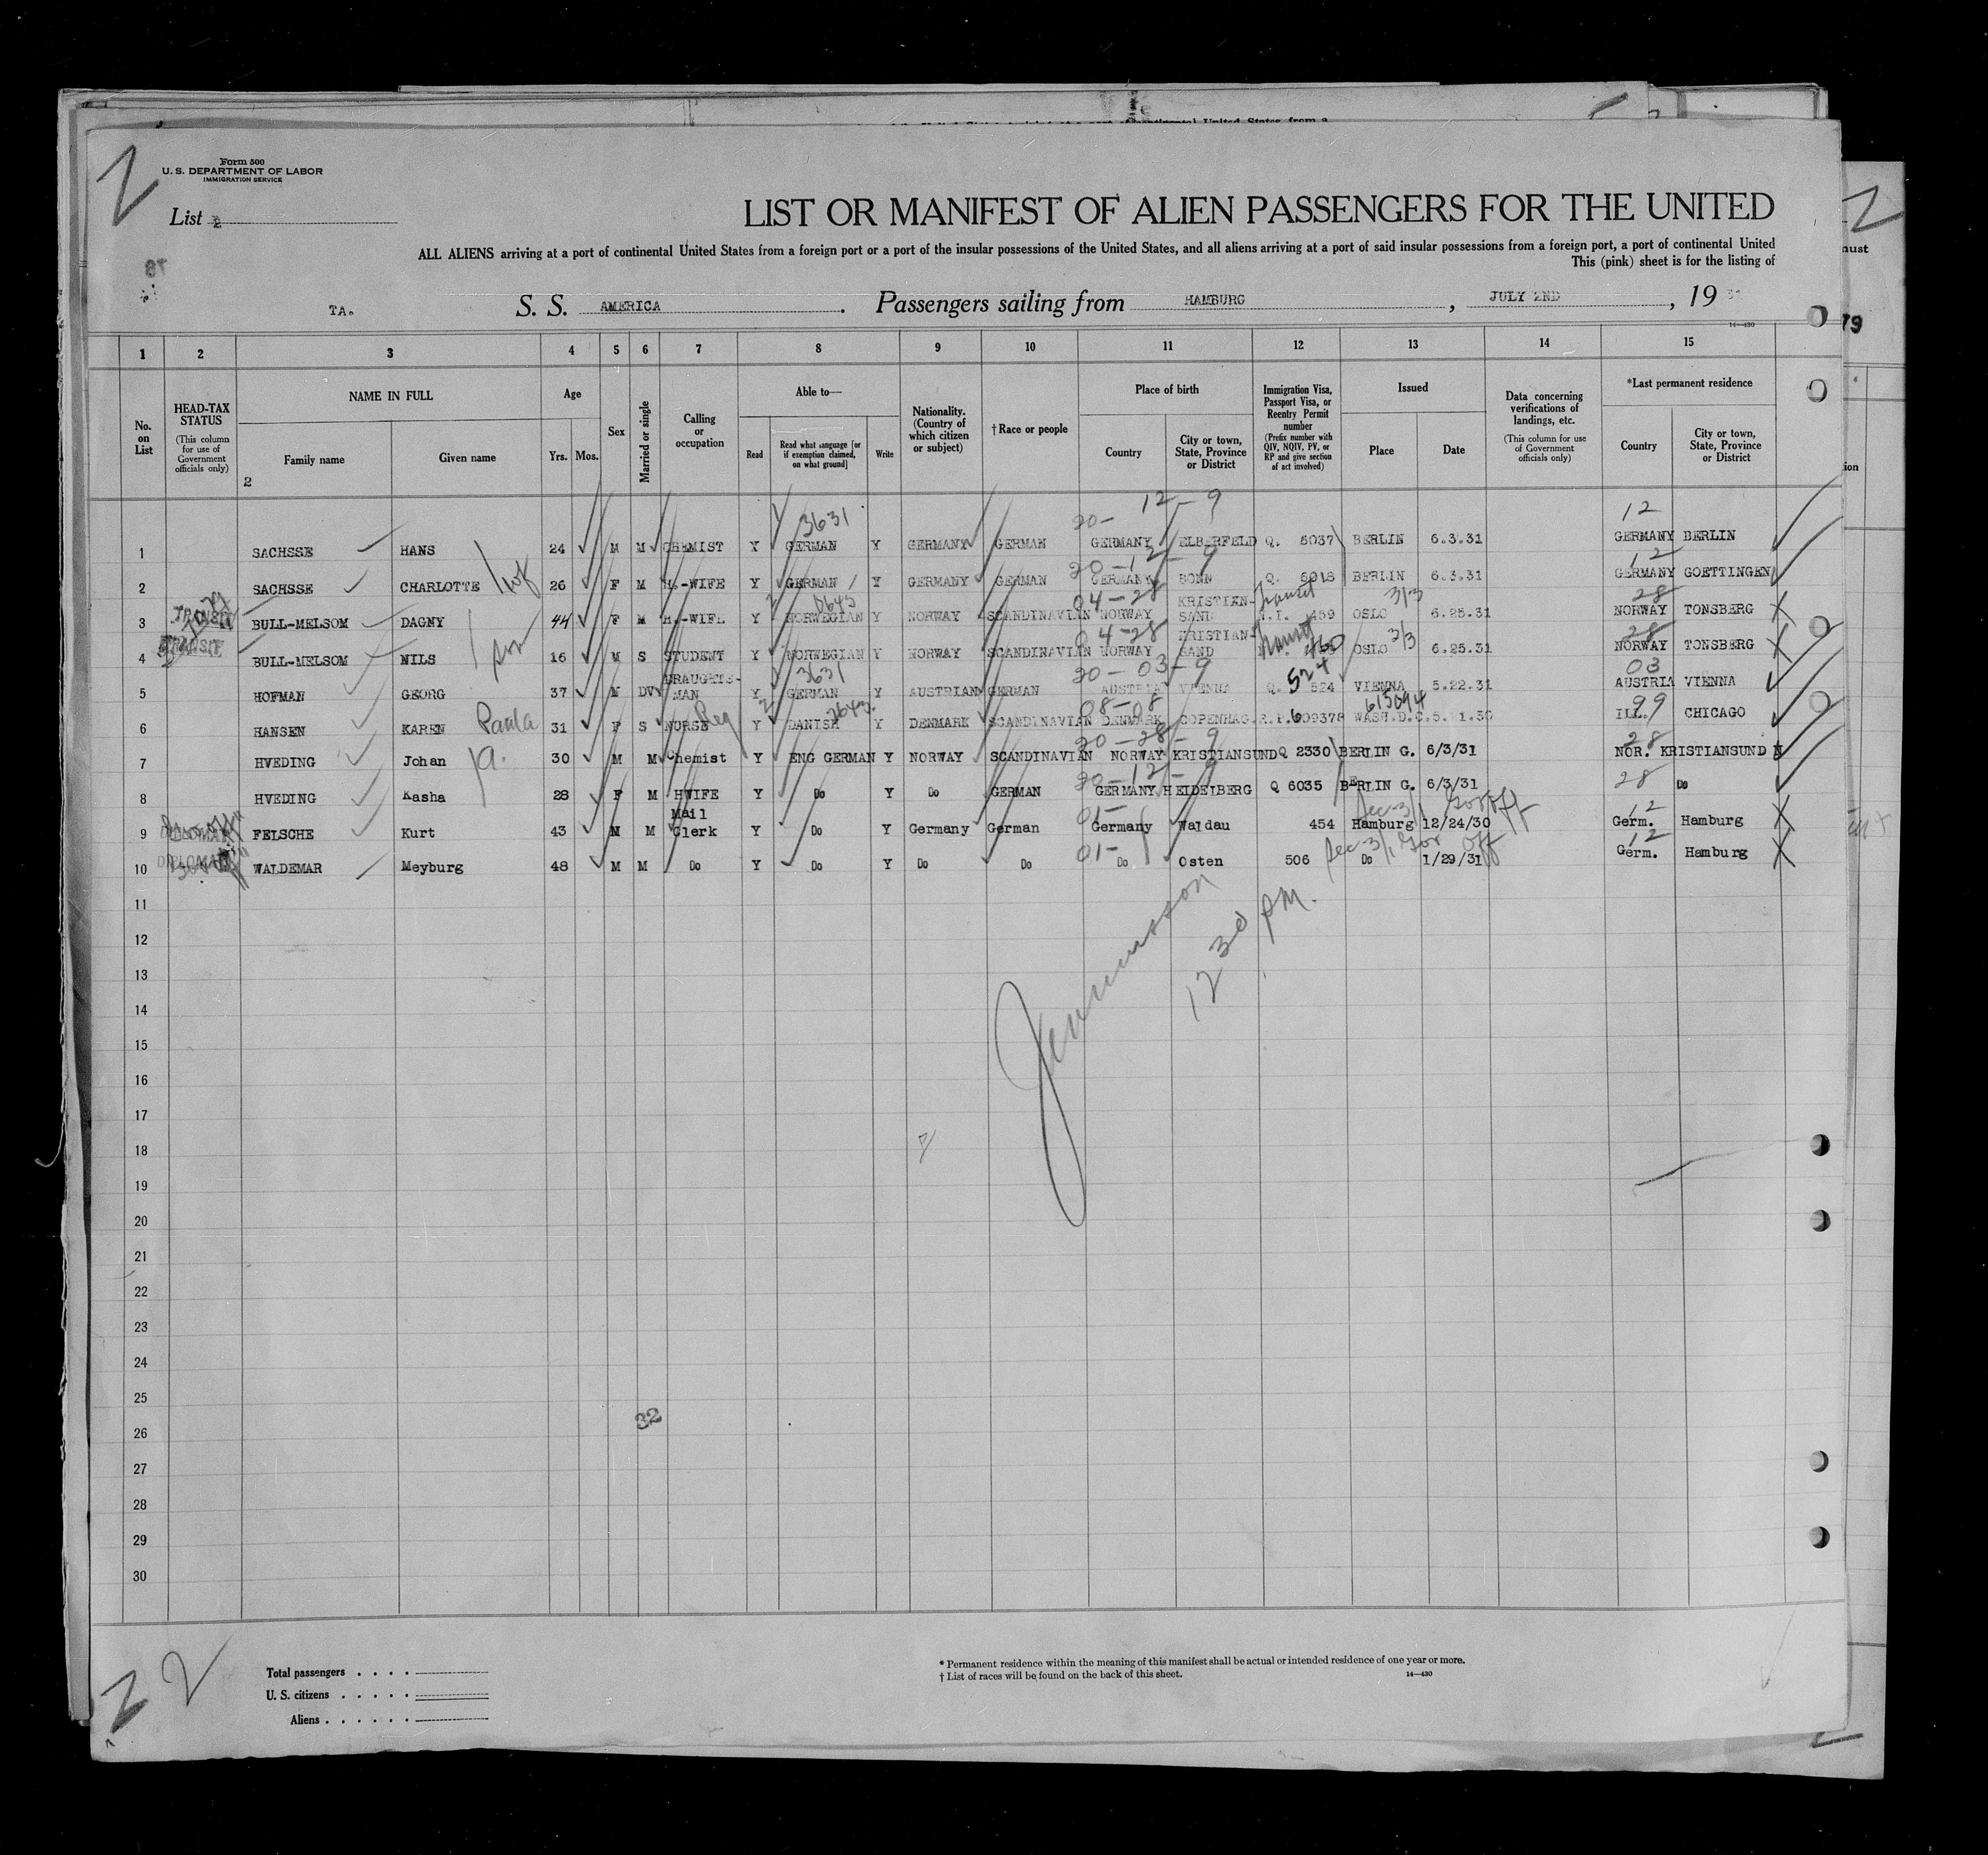 Form 500
U. S. DEPARTMENT OF LABOR
IMMIGRATION SERVICE
List 2
LIST OR MANIFEST OF ALIEN PASSENGERS FOR THE UNITED
ALL ALIENS arriving at a port of continental United States from a foreign port or a port of the insular possessions of the United States, and all aliens arriving at a port of said insular possessions from a foreign port, a port of continental United
This (pink) sheet is for the listing of
TA. S. S. AMERICA. Passengers sailing from HAMBURG, JULY 2ND, 19 31
14—430
1 2 3 4 5 6 7 8 9 10 11 12 13 14 15
No. on List
HEAD-TAX STATUS (This column for use of Government officials only)
NAME IN FULL
Family name
Given name
2
Age
Yrs. Mos.
Sex
Married or single
Calling or occupation
Able to—
Read
Read what language [or if exemption claimed, on what ground]
Write
Nationality. (Country of which citizen or subject)
†Race or people
Place of birth
Country
City or town, State, Province or District
Immigration Visa, Passport Visa, or Reentry Permit number (Prefix number with QIV, NQIV, PV, or RP and give section of act involved)
Issued
Place
Date
Data concerning verifications of landings, etc. (This column for use of Government officials only)
*Last permanent residence
Country
City or town, State, Province or District
3631 20- 12-9 12
1 SACHSSE HANS 24 M M CHEMIST Y GERMAN Y GERMANY GERMAN GERMANY ELBERFELD Q. 6037 BERLIN 6.3.31 GERMANY BERLIN
20-12-9 12
2 SACHSSE CHARLOTTE wf 26 F M H.-WIFE Y GERMAN Y GERMANY GERMAN GERMANY BONN Q. 6018 BERLIN 6.3.31 GERMANY GOETTINGEN
0645 04-28 KRISTIAN- Transit 3/3 28
3 TRANSIT BULL-MELSOM DAGNY 44 F M H.-WIFE Y NORWEGIAN Y NORWAY SCANDINAVIAN NORWAY SAND 459 OSLO 6.25.31 NORWAY TONSBERG
04-28 KRISTIAN- Transit 3/3 28
4 TRANSIT BULL-MELSOM NILS son 16 M S STUDENT Y NORWEGIAN Y NORWAY SCANDINAVIAN NORWAY SAND 460 OSLO 6.25.31 NORWAY TONSBERG
DRAUGHTS- 3631 20-03-9 524 03
5 HOFMAN GEORG 37 M DV MAN Y GERMAN Y AUSTRIAN GERMAN AUSTRIA VIENNA Q. 524 VIENNA 5.22.31 AUSTRIA VIENNA
2643 08-08 615094 99
6 HANSEN KAREN Paula 31 F S NURSE Reg Y DANISH Y DENMARK SCANDINAVIAN DENMARK COPENHAG. R.P. 609378 WASH.D.C. ILL. CHICAGO
20-28-9 28
7 HVEDING Johan A. 30 M M Chemist Y ENG GERMAN Y NORWAY SCANDINAVIAN NORWAY KRISTIANSUND Q 2330 BERLIN G. 6/3/31 NOR. KRISTIANSUND N
20-12-9 28
8 HVEDING Kasha 28 F M HWIFE Y Do Y Do GERMAN GERMANY HEIDELBERG Q 6035 BERLIN G. 6/3/31 Do
Mail 01- Sec-3/1 Gov off 12
9 FELSCHE Kurt 43 M M Clerk Y Do Y Germany German Germany Waldau 454 Hamburg 12/24/30 Germ. Hamburg
01- Sec-3/1 Gov off 12
10 DIPLOMAT WALDEMAR Meyburg 48 M M Do Y Do Y Do Do Do Osten 506 Do 1/29/31 Germ. Hamburg
11
12
12 30 PM.
13
14
15
16
17
18
19
20
21
22
23
24
25
32
26
27
28
29
30
2
Total passengers . . . .
U. S. citizens . . . . .
Aliens . . . . . .
* Permanent residence within the meaning of this manifest shall be actual or intended residence of one year or more.
† List of races will be found on the back of this sheet.
14—430